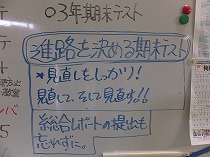 03年期末テスト
進路を決める期末テスト
*見直しをしっかり!
見直して、そして見直す!!
総合レポートの提出も
忘れずに。